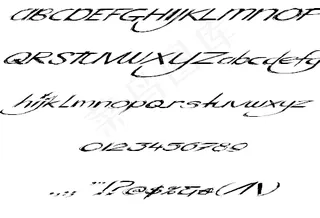 aBCDEFGHIJKLmnOP
QRSTUVWXYZabcdefg
hijkLmnopqrstuvwxyz
0123456789